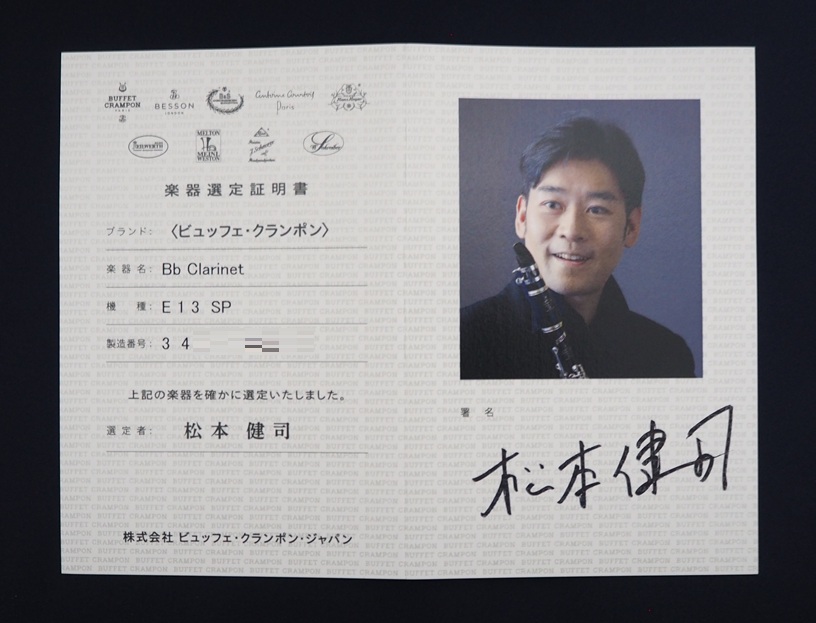 BUFFET
CRAMPON
PARIS
BESSON
LONDON
B&S
Antoine Courtois
Paris
KEILWERTH
MELTON
MEINL
WESTON
J. Scherzer
Schreiber
楽器選定証明書
ブランド: 〈ビュッフェ・クランポン〉
楽器名: Bb Clarinet
機 種: E13 SP
製造番号: 34
上記の楽器を確かに選定いたしました。
選定者: 松本 健司
株式会社 ビュッフェ・クランポン・ジャパン
署 名
松本健司
BUFFET CRAMPON